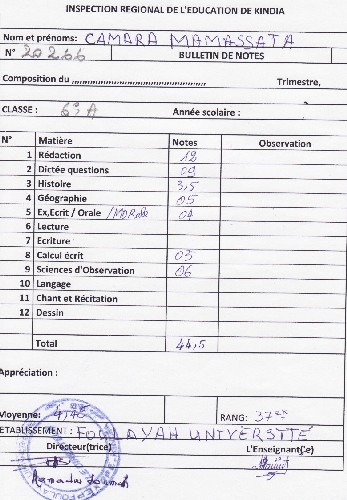 INSPECTION REGIONAL DE L'EDUCATION DE KINDIA
Nom et prénoms: CAMARA MAMASSATA
N° 20266 BULLETIN DE NOTES
Composition du ,,,,,,,,,,,,,,,,,,,,,,,,,,,,,,,,,,,,,,,, Trimestre,
CLASSE : 6è A Année scolaire :
N° Matière Notes Observation
1 Rédaction 12
2 Dictée questions 09
3 Histoire 3,5
4 Géographie 05
5 Ex,Ecrit / Orale /MORale 04
6 Lecture
7 Ecriture
8 Calcul écrit 03
9 Sciences d'Observation 06
10 Langage
11 Chant et Récitation
12 Dessin
Total 44,5
Appréciation :
Moyenne: RANG: 37ex
ETABLISSEMENT : FOULAYAH UNIVERSITE
Directeur(trice) L'Enseignant(e)